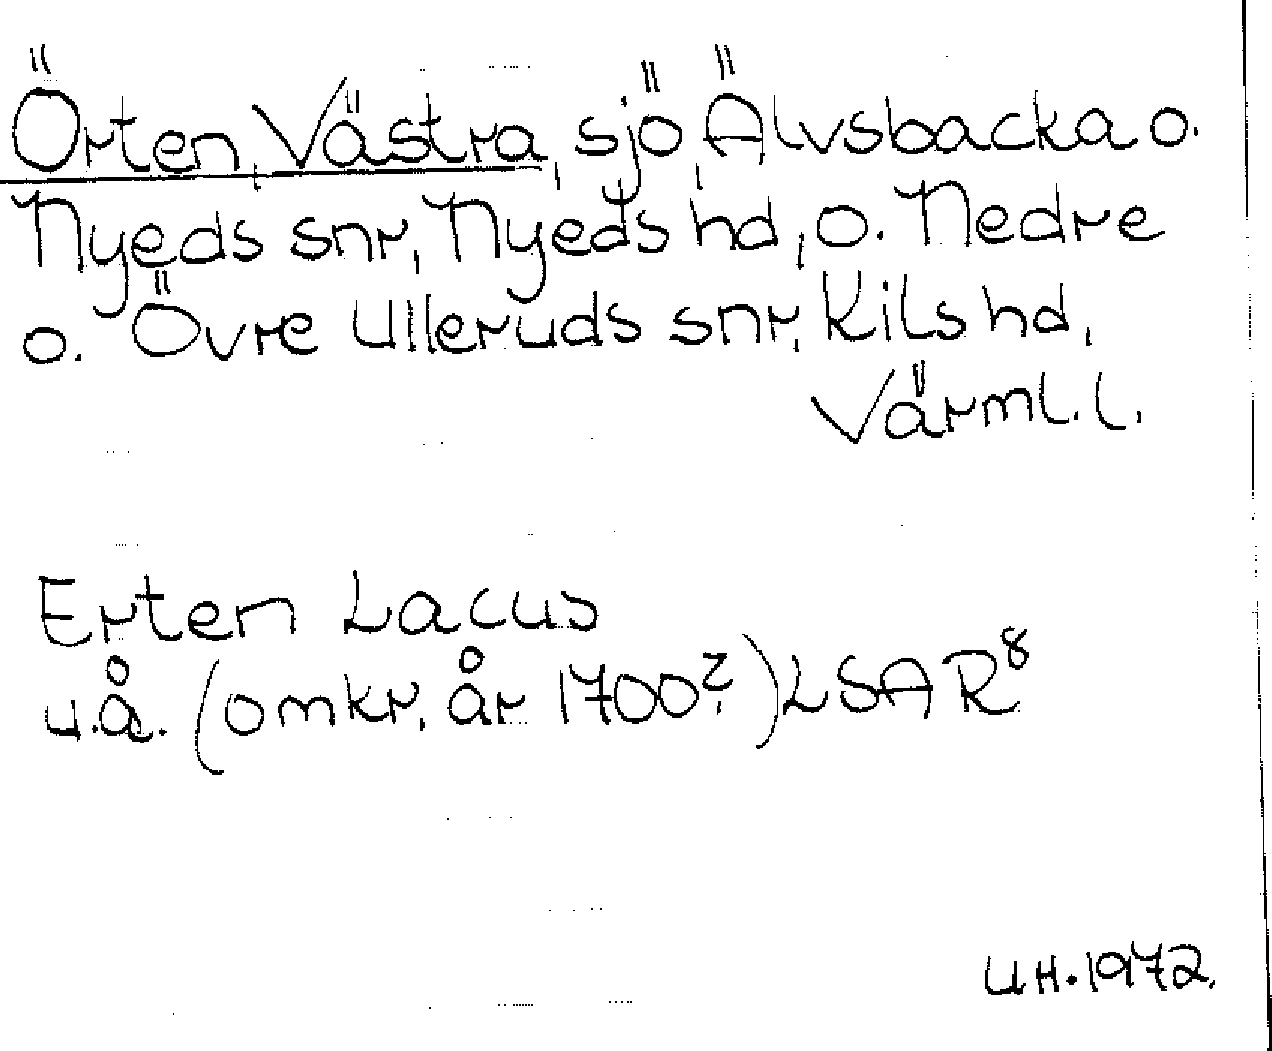 Örten, Västra, sjö, Älvsbacka o.
Nyeds snr, Nyeds hd, o. Nedre
o. Övre Ulleruds snr, Kils hd,
Värml. l.
Erten Lacus
u.å. (omkr. år 1700?) LSAR⁸
UH. 1972.